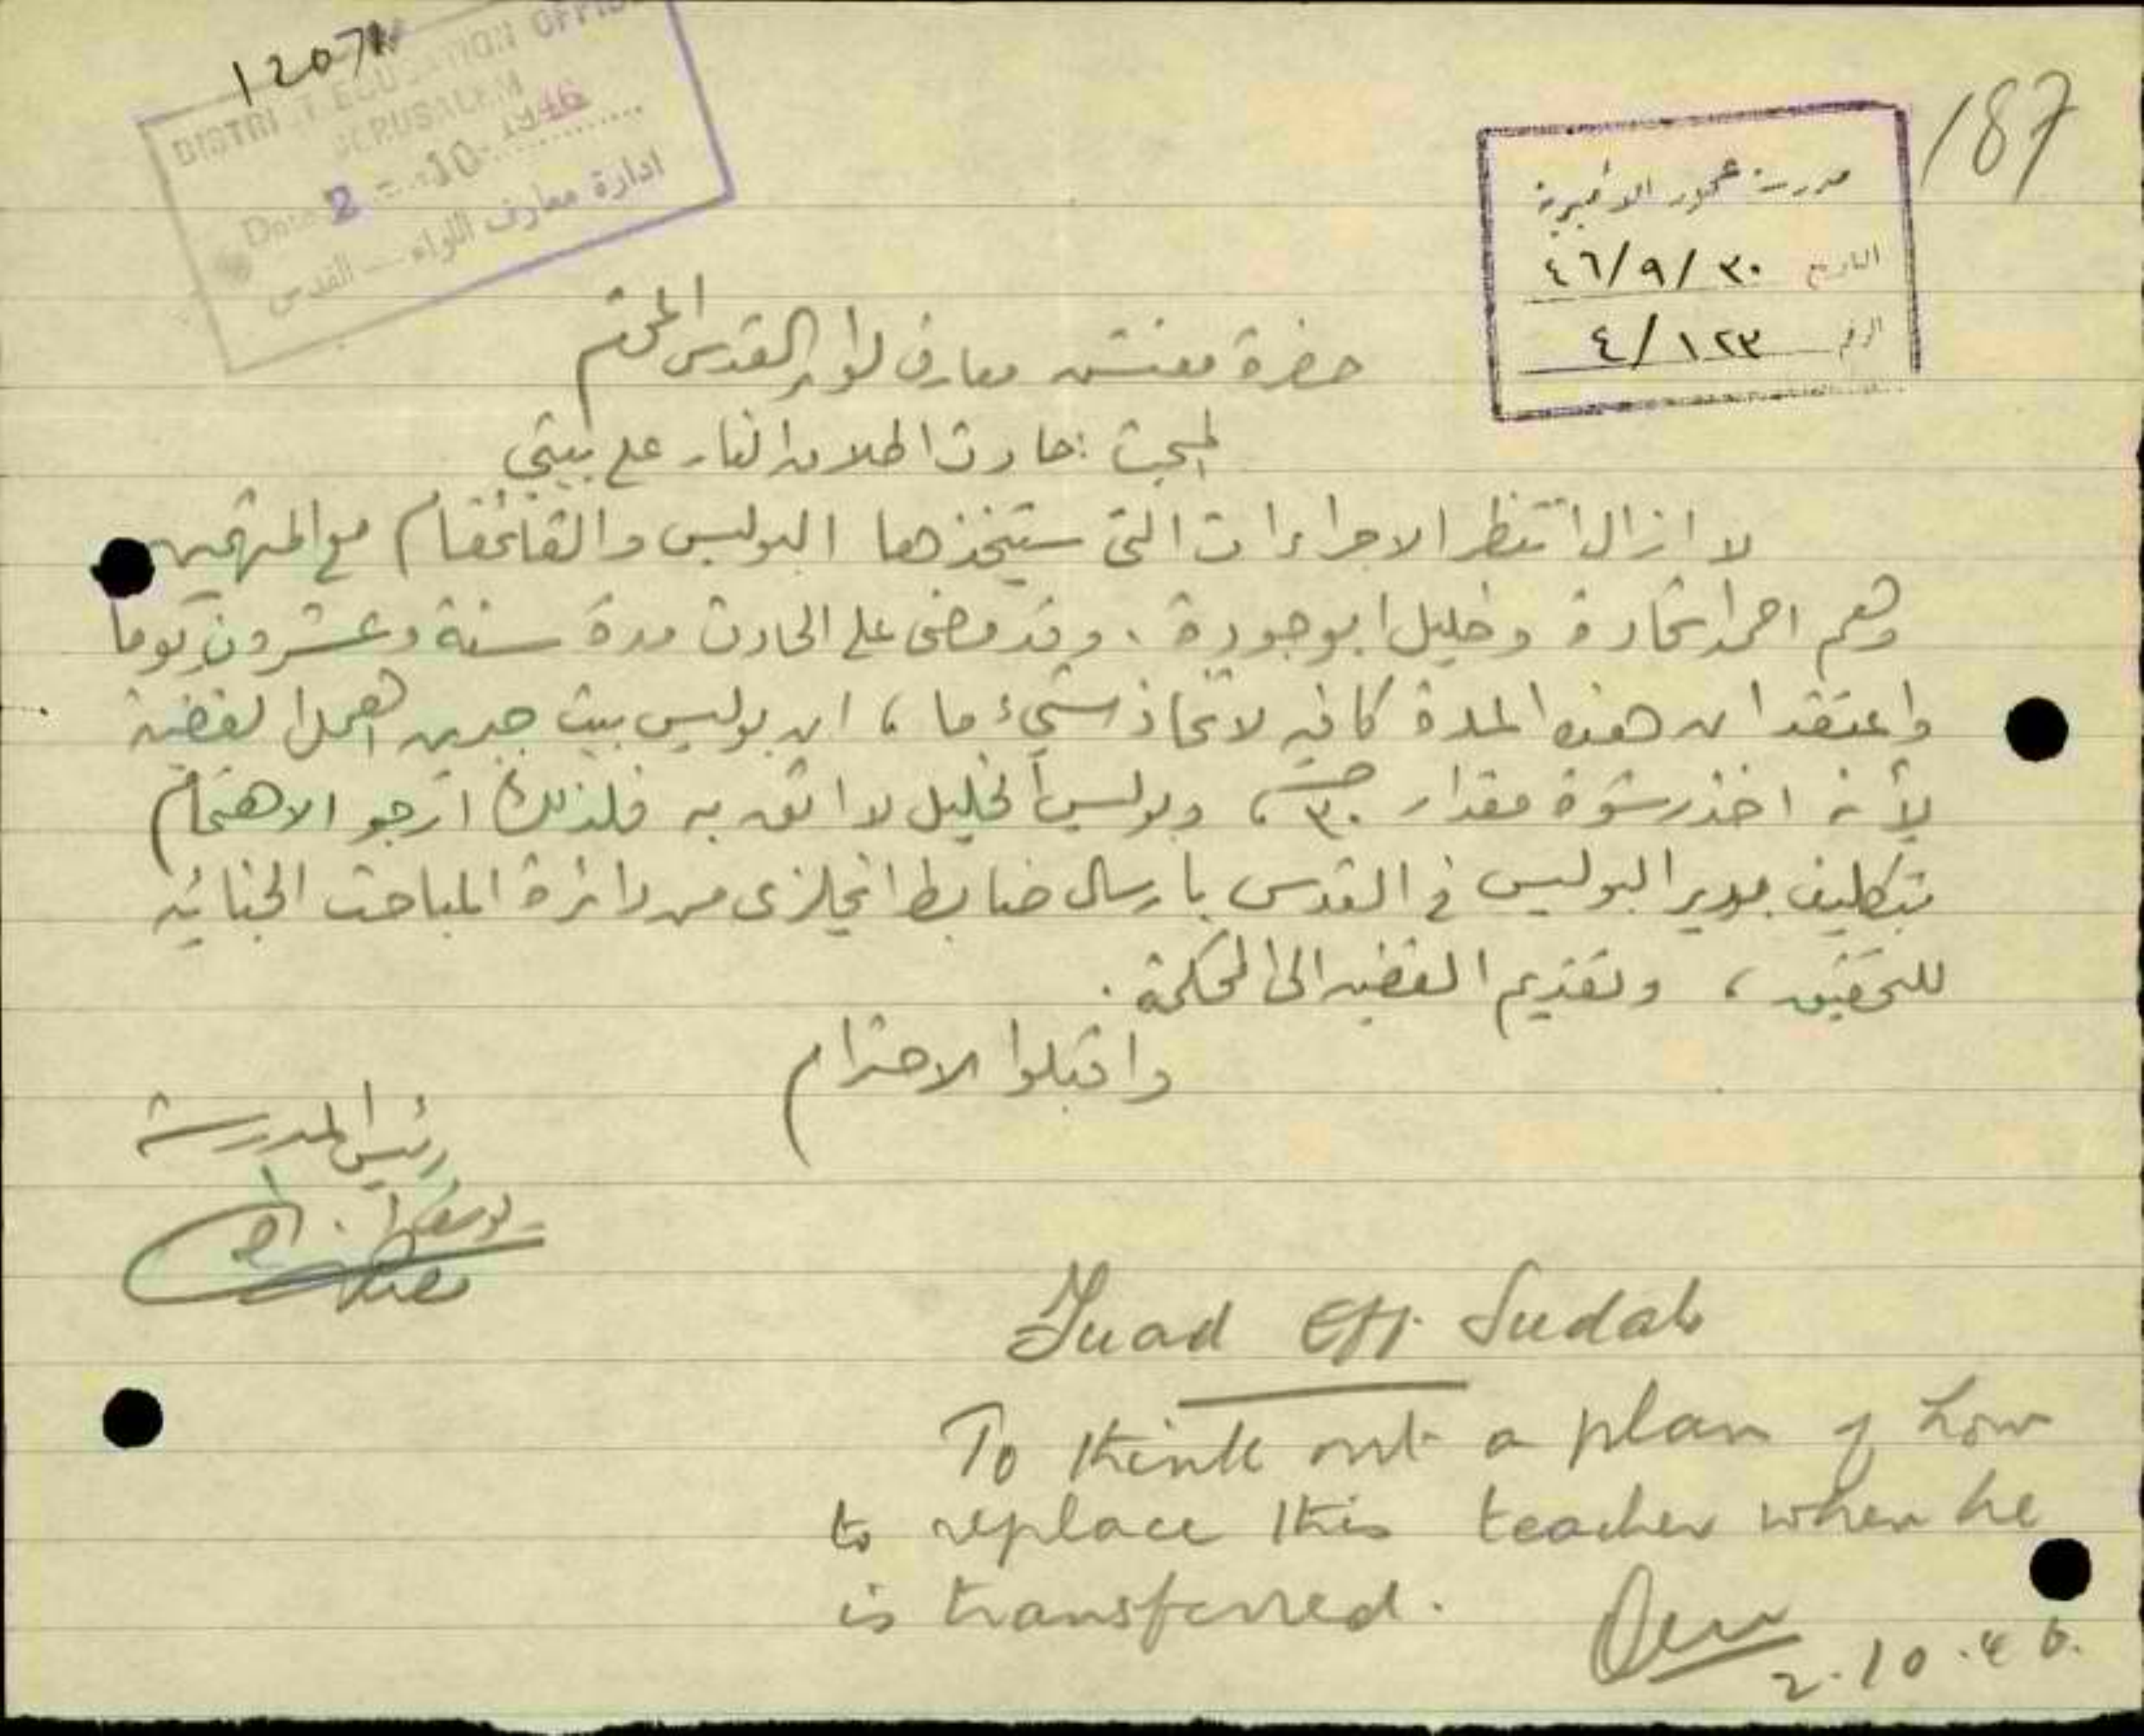 12071
DISTRICT EDUCATION OFFICE
JERUSALEM
Date 2 - 10 - 1946
ادارة معارف اللواء — القدس
187
مدرسة عجور الاميرية
التاريخ ٣٠/٩/٤٦
الرقم ٤/١٢٣
حضرة مفتش معارف لواء القدس المحترم
المبحث : حادث اطلاق النار على بيتي
لا ازال انتظر الاجراءات التي ستيخذها البوليس والقائمقام مع المتهمين
وهم احمد شحادة وخليل ابو جودة . وقد مضى على الحادث مدة ستة وعشرون يوما
واعتقد ان هذه المدة كافيه لاتخاذ شيء ما ، ان بوليس بيت جبرين اهمل القضية
لأنه اخذ رشوة مقدار ٣٠ ، وبوليس الخليل لا اثق به فلذلك ارجو الاهتمام
بتكليف مدير البوليس في القدس بارسال ضابط انجليزى من دائرة المباحث الجنائيه
للتحقيق ، وتقديم القضيه الى المحكمة .
واقبلوا الاحترام
رئيس المدرسة
Fuad Eff. Sudah
To think out a plan of how
to replace this teacher when he
is transferred.
2.10.46.